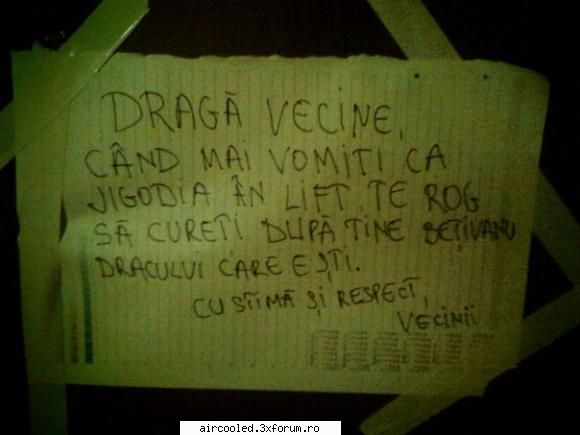 DRAGĂ VECINE,
CÂND MAI VOMITI CA
JIGODIA ÂN LIFT, TE ROG
SĂ CURETI DUPĂ TINE BEȚIVANU
DRACULUI CARE EȘTI.
CU STIMĂ ȘI RESPECT,
VECINII
aircooled.3xforum.ro